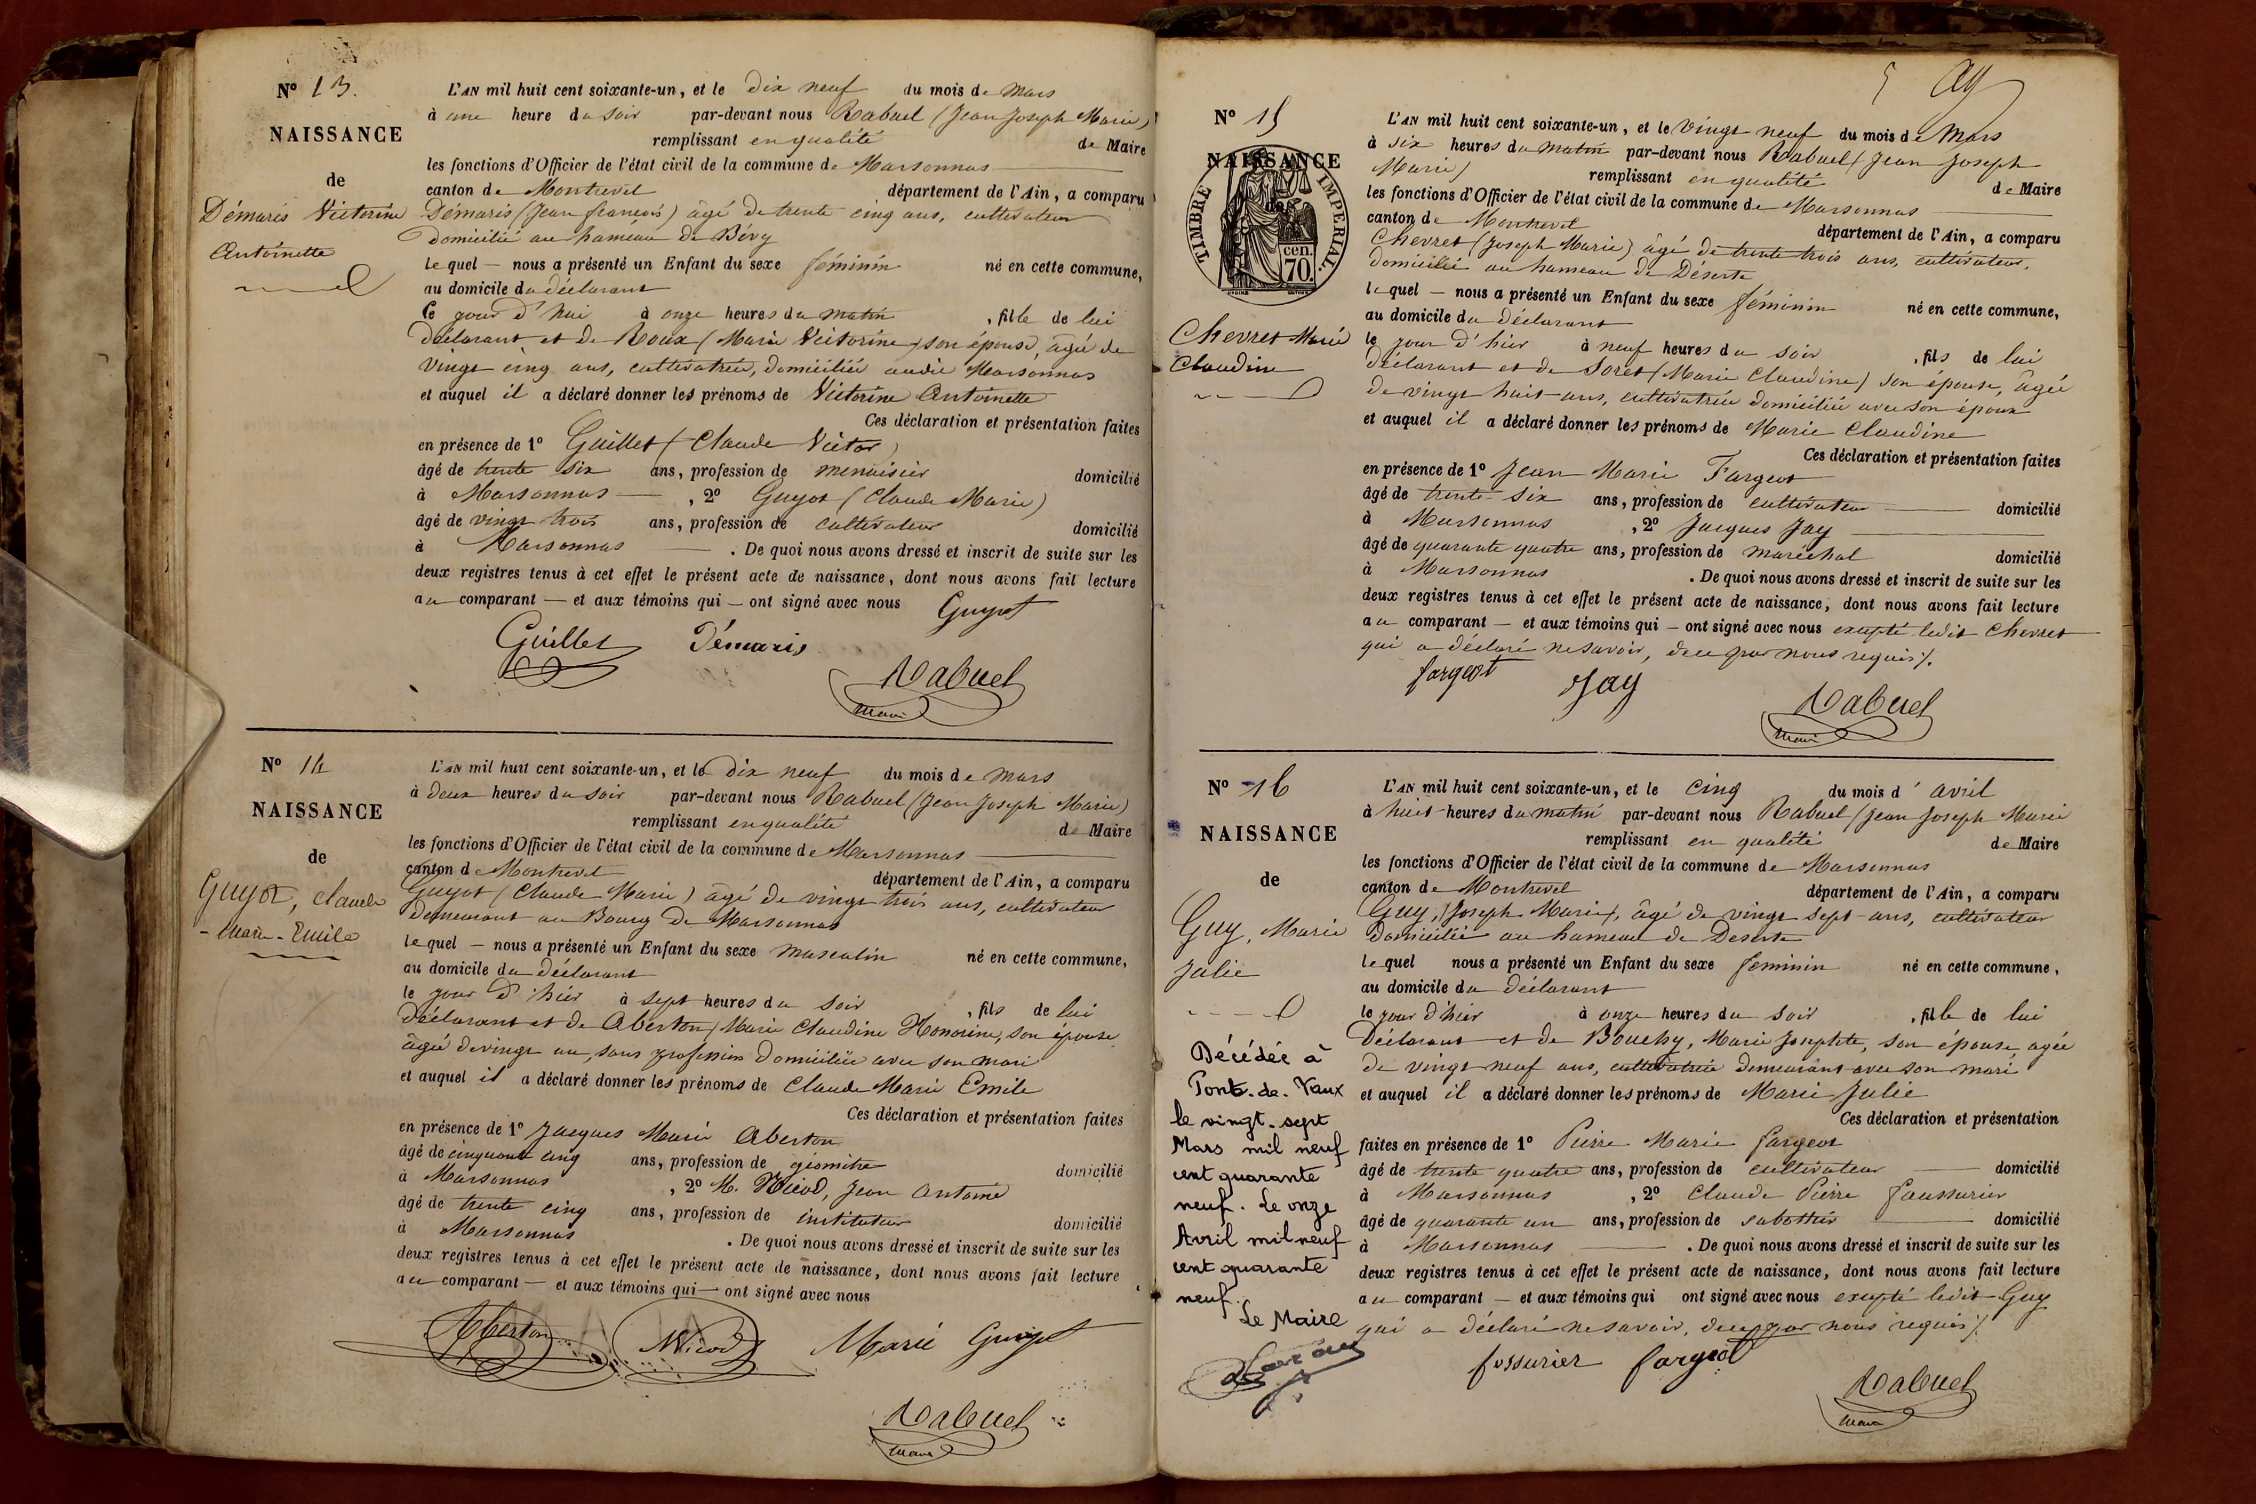 Nº 13.
NAISSANCE
de
Démaris Victorine
Antoinette
L'AN mil huit cent soixante-un, et le Dix neuf du mois de Mars
à une heure du Soir par-devant nous Rabuel (Jean Joseph Marie)
remplissant en qualité de Maire
les fonctions d'Officier de l'état civil de la commune de Marsonnas
canton de Montrevel département de l'Ain, a comparu
Démaris (Jean françois) âgé de trente cinq ans, cultivateur
domicilié au hameau de Bévy
lequel — nous a présenté un Enfant du sexe féminin né en cette commune,
au domicile du déclarant
Ce jour d'hui à onze heures du matin, fille de lui
déclarant et de Roux (Marie Victorine) son épouse, âgée de
vingt cinq ans, cultivatrice, domiciliée audit Marsonnas
et auquel il a déclaré donner les prénoms de Victorine Antoinette
Ces déclaration et présentation faites
en présence de 1º Guillet (Claude Victor)
âgé de trente six ans, profession de menuisier domicilié
à Marsonnas, 2º Guyot (Claude Marie)
âgé de vingt trois ans, profession de cultivateur domicilié
à Marsonnas. De quoi nous avons dressé et inscrit de suite sur les
deux registres tenus à cet effet le présent acte de naissance, dont nous avons fait lecture
au comparant — et aux témoins qui — ont signé avec nous Guyot
Guillet Démaris
Rabuel
Maire
Nº 14
NAISSANCE
de
Guyot, Claude
-Marie-Emile
L'AN mil huit cent soixante-un, et le Dix neuf du mois de Mars
à Deux heures du Soir par-devant nous Rabuel (Jean Joseph Marie)
remplissant en qualité de Maire
les fonctions d'Officier de l'état civil de la commune de Marsonnas
canton de Montrevel département de l'Ain, a comparu
Guyot (Claude Marie) âgé de vingt trois ans, cultivateur
demeurant au Bourg de Marsonnas
lequel — nous a présenté un Enfant du sexe masculin né en cette commune,
au domicile du déclarant
le jour d'hier à sept heures du soir, fils de lui
Déclarant et de Aberton, Marie Claudine Honorine, son épouse
âgée de vingt un, sans profession domiciliée avec son mari
et auquel il a déclaré donner les prénoms de Claude Marie Emile
Ces déclaration et présentation faites
en présence de 1º Jacques Marie Aberton
âgé de cinquante cinq ans, profession de géomètre domicilié
à Marsonnas, 2º M. Nicod, Jean Antoine
âgé de trente cinq ans, profession de instituteur domicilié
à Marsonnas. De quoi nous avons dressé et inscrit de suite sur les
deux registres tenus à cet effet le présent acte de naissance, dont nous avons fait lecture
au comparant — et aux témoins qui — ont signé avec nous
Aberton Nicod Marie Guyot
Rabuel
Maire
5
Nº 15
NAISSANCE
de
TIMBRE IMPERIAL.
cen. 70.
Chevret Marie
Claudine
L'AN mil huit cent soixante-un, et le Vingt neuf du mois de Mars
à six heures du matin par-devant nous Rabuel (Jean Joseph
Marie) remplissant en qualité de Maire
les fonctions d'Officier de l'état civil de la commune de Marsonnas
canton de Montrevel département de l'Ain, a comparu
Chevret (Joseph Marie) âgé de trente trois ans, cultivateur,
domicilié au hameau de Déserte
lequel — nous a présenté un Enfant du sexe féminin né en cette commune,
au domicile du déclarant
le jour d'hier à neuf heures du soir, fils de lui
déclarant et de Soret (Marie Claudine) son épouse, âgée
de vingt huit ans, cultivatrice domiciliée avec son époux
et auquel il a déclaré donner les prénoms de Marie Claudine
Ces déclaration et présentation faites
en présence de 1º Jean Marie Fargeot
âgé de trente-six ans, profession de cultivateur domicilié
à Marsonnas, 2º Jacques Jay
âgé de quarante quatre ans, profession de maréchal domicilié
à Marsonnas. De quoi nous avons dressé et inscrit de suite sur les
deux registres tenus à cet effet le présent acte de naissance, dont nous avons fait lecture
au comparant — et aux témoins qui — ont signé avec nous excepté ledit Chevret
qui a déclaré ne savoir, de ce par nous requis /.
fargeot Jay
Rabuel
Maire
Nº 16
NAISSANCE
de
Guy, Marie
Julie
Décédée à
Pont-de-Vaux
le vingt-sept
Mars mil neuf
cent quarante
neuf. Le onze
Avril mil neuf
cent quarante
neuf.
Le Maire
L'AN mil huit cent soixante-un, et le cinq du mois d'avril
à huit heures du matin par-devant nous Rabuel (Jean Joseph Marie
remplissant en qualité de Maire
les fonctions d'Officier de l'état civil de la commune de Marsonnas
canton de Montrevel département de l'Ain, a comparu
Guy, (Joseph Marie), âgé de vingt sept ans, cultivateur
domicilié au hameau de Deserte
lequel nous a présenté un Enfant du sexe féminin né en cette commune,
au domicile du déclarant
le jour d'hier à onze heures du soir, fille de lui
Déclarant et de Bouchy, Marie Josephte, son épouse agée
de vingt neuf ans, cultivatrice demeurant avec son mari
et auquel il a déclaré donner les prénoms de Marie Julie
Ces déclaration et présentation
faites en présence de 1º Pierre Marie fargeot
âgé de trente quatre ans, profession de cultivateur domicilié
à Marsonnas, 2º Claude Pierre faussurier
âgé de quarante un ans, profession de sabottier domicilié
à Marsonnas. De quoi nous avons dressé et inscrit de suite sur les
deux registres tenus à cet effet le présent acte de naissance, dont nous avons fait lecture
au comparant — et aux témoins qui ont signé avec nous excepté ledit Guy
qui a déclaré ne savoir, de ce par nous requis /.
fossurier fargeot
Rabuel
Maire